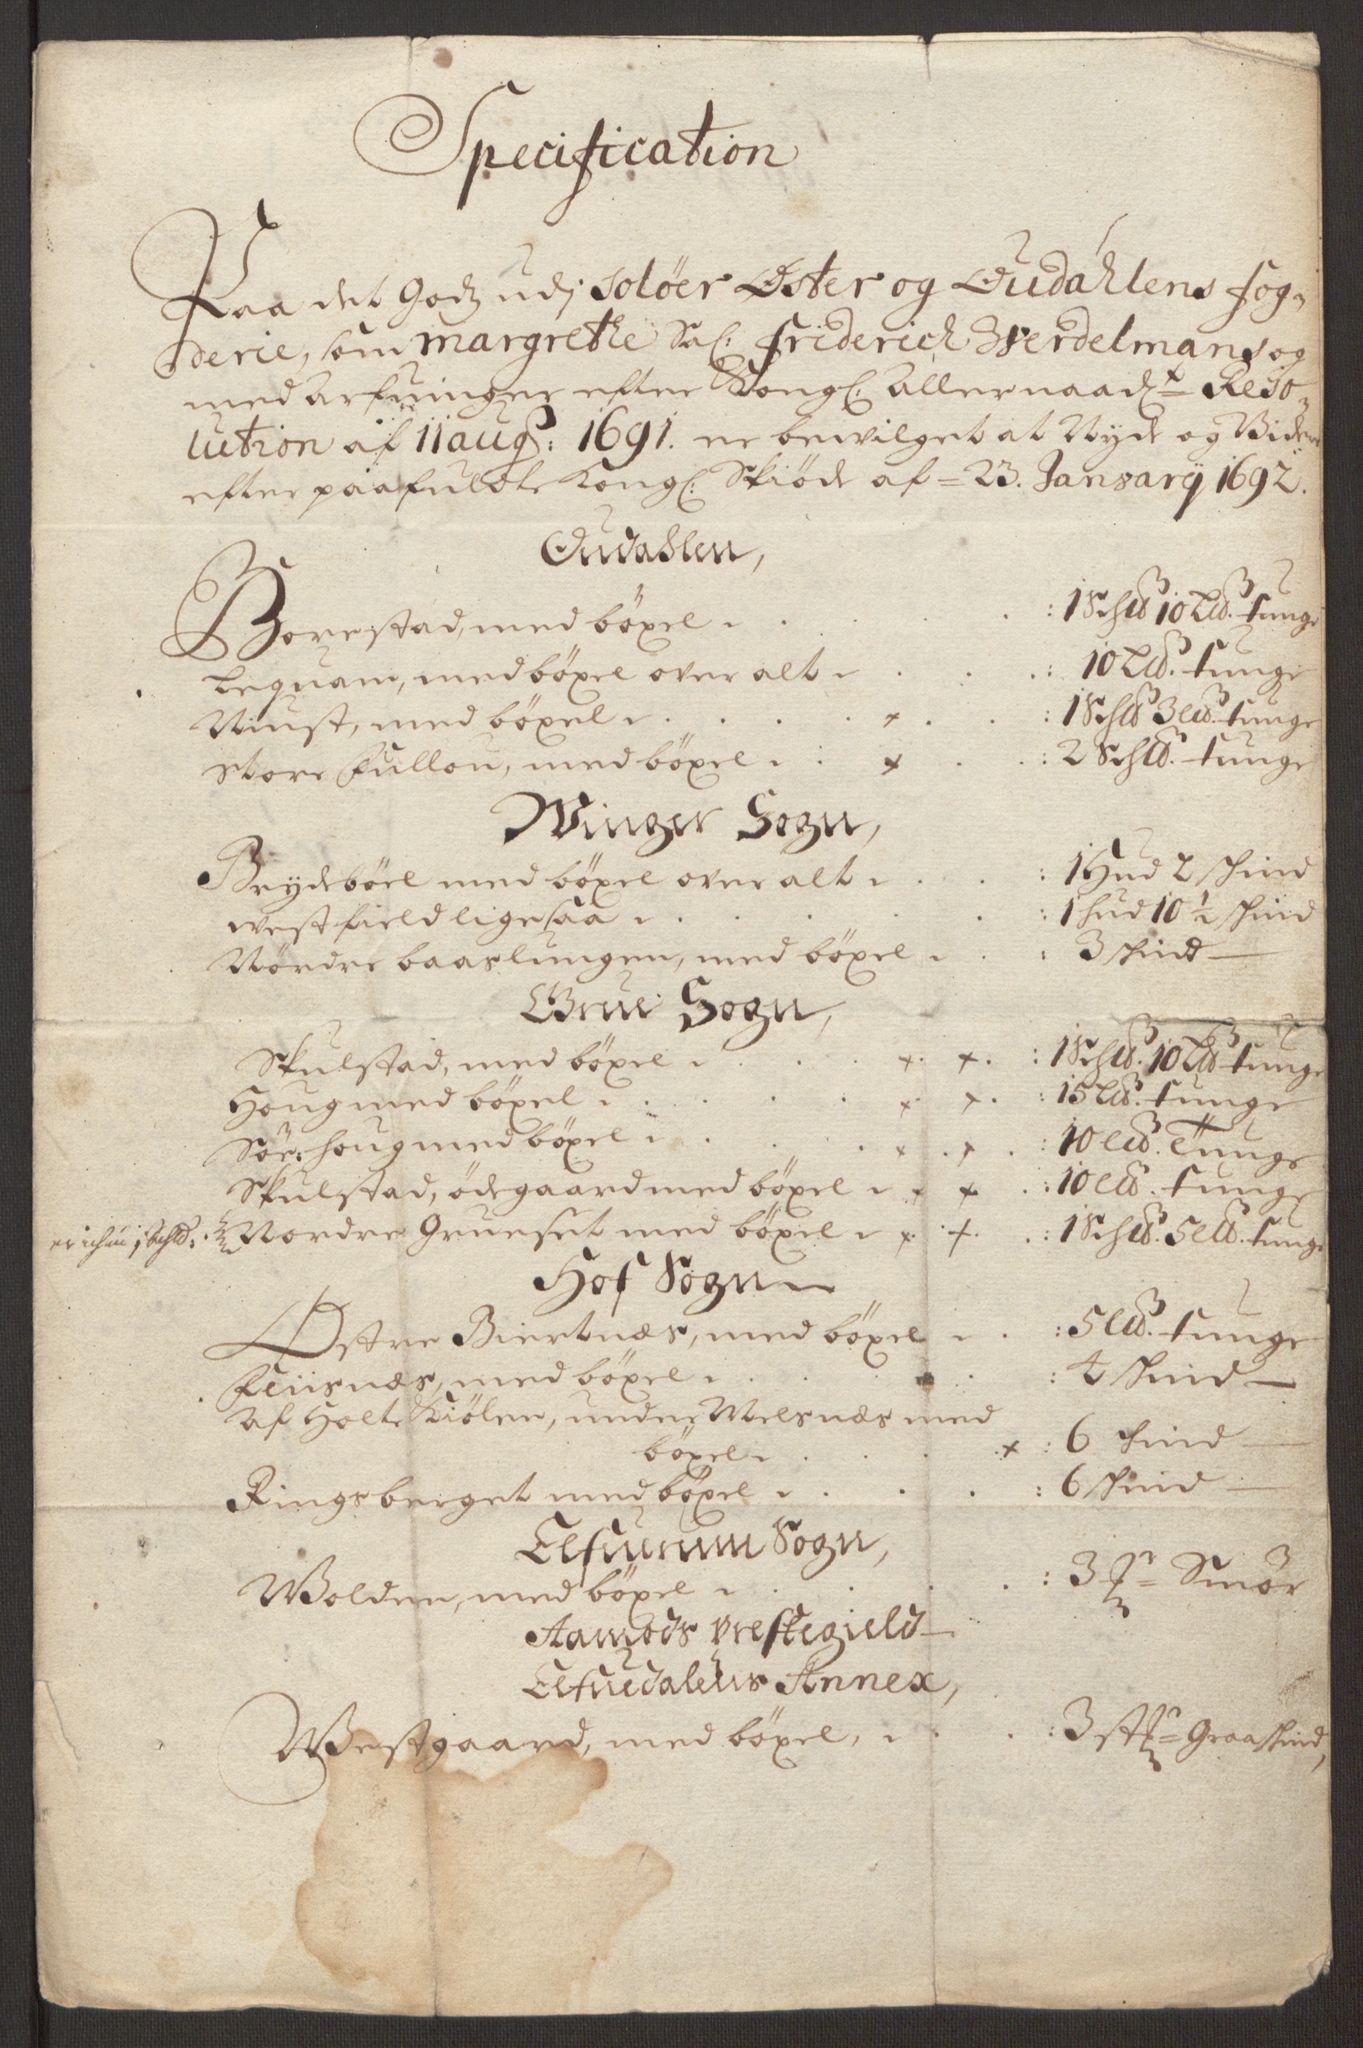 Specification
Paa det Godz udj Solöer Öster og Oudahlens fog-
derie, som Margrethe Sal: Friderich Werdelmans og
med Arfuinger efter Kongl: allernaadt= Reso-
lution af 11 aug: 1691. er bewilget at Nyde og Bide
efter paafuldte Kongl: Skiöde af= 23. January 1692.
Oudahlen,
Borestad, med böxel : 1 Sch℔ 10 L℔. tunge
Lequam, med böxel over alt : 10 L℔. tunge
Niust, med böxel × : 1 Sch℔ 3 L℔. tunge
Store Fullou, med böxel × : 2 Sch℔. tunge
Winger Sogn,
Brydeböel med böxel over alt : 1 Hud 2 skind
westfield ligesaa : 1 hud 10 ½ skind
Nördre baaslungen, med böxel : 3 skind
Grue Sogn,
Skulstad, med böxel × × : 1 Sch℔. 10 L℔ tunge
Houg med böxel × × : 15 L℔. tunge
Sör houg med böxel × × : 10 L℔. Tunge
Skulstad, ödegaard med böxel × × : 10 L℔. tunge
er ichun 1 Sch℔: Nordre Grueset med böxel × × : 1 Sch℔. 5 L℔. tunge
Hof Sogn
Östre Biertnæs, med böxel : 5 L℔. tunge
Fliisnæs, med böxel : 4 skind
Af Holte Kiölen, under Welsnæs med
böxel × : 6 skind
Ringsberget med böxel : 6 skind
Elfuerum Sogn,
Wolden, med böxel : 3 Smör
Aamods Prestegield
Elfuedalens Annex,
Westgaard, med böxel, : 3 Graaskind,